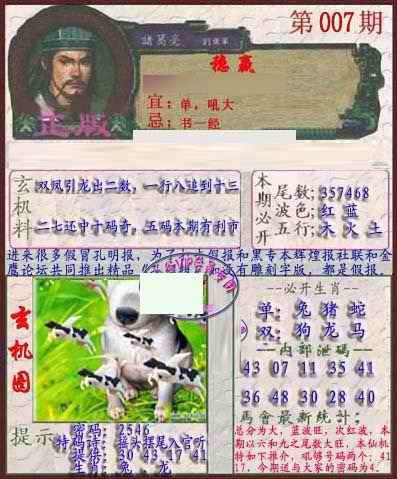 第007期
諸葛亮
稳赢
宜：单，吼大
忌：书一经
正版
玄机料
双凤引龙出二数，一行八追到十三
二七还中十码奇，五码本期有利市
本期必开
尾数：357468
波色：红 蓝
五行：木 火 土
进来很多假冒孔明报，为了打击假报和黑专本辉煌报社联和金
鹰论坛共同推出精品
有雕刻字版，都是假报。
玄机图
--必开生肖--
单：兔 猪 蛇
双：狗 龙 马
--内部泄码--
43 07 11 35 41
36 48 30 28 40
马會最新统計：
总分为大，蓝波旺，次红波，本
期以六和九之尾数大旺，本仙机
特如下推介，吼够号码两个：41
17，今期送与大家的密码为4.
提示
密码：2546
特码诗：摇头摆尾入官所
提供：30 43 17 41
生肖：兔，龙